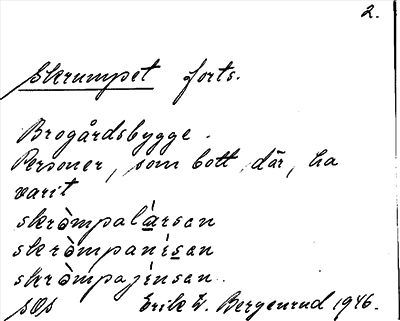 2.
Skrumpet forts.
Brogårdsbygge.
Personer, som bott där, ha
varit
skròmpalársan
skròmpanísan
skròmpajínsan.
SOs Erik E. Bergenrud 1946.